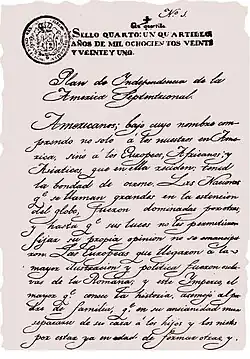 Nº 1.
Un quartillo
SELLO QUARTO: UN QUARTILLO,
AÑOS DE MIL OCHOCIENTOS VEINTE
Y VEINTE Y UNO.
Plan de Independencia de la
America Septentrional.
Americanos; bajo cuyo nombre com-
prendo no solo á los nacidos en Ame-
rica, sino á los Europeos, Africanos, y
Asiaticos, que en ella residen: tened
la bondad de oirme. Las Naciones
q.e se llaman grandes en la estencion
del globo, fueron dominadas por otras,
y hasta q.e sus luces no les permitieron
fijar su propia opinion no se emancipa-
ron. Las Europeas que llegaron á la
mayor ilustracion y politica fueron escla-
vas de la Romana; y este Imperio, el
mayor q.e conoce la historia, asemejó al pa-
dre de familias, q.e en su ancianidad mira
separarse de su casa á los hijos y los nietos
por estar ya en edad de formar otras, y